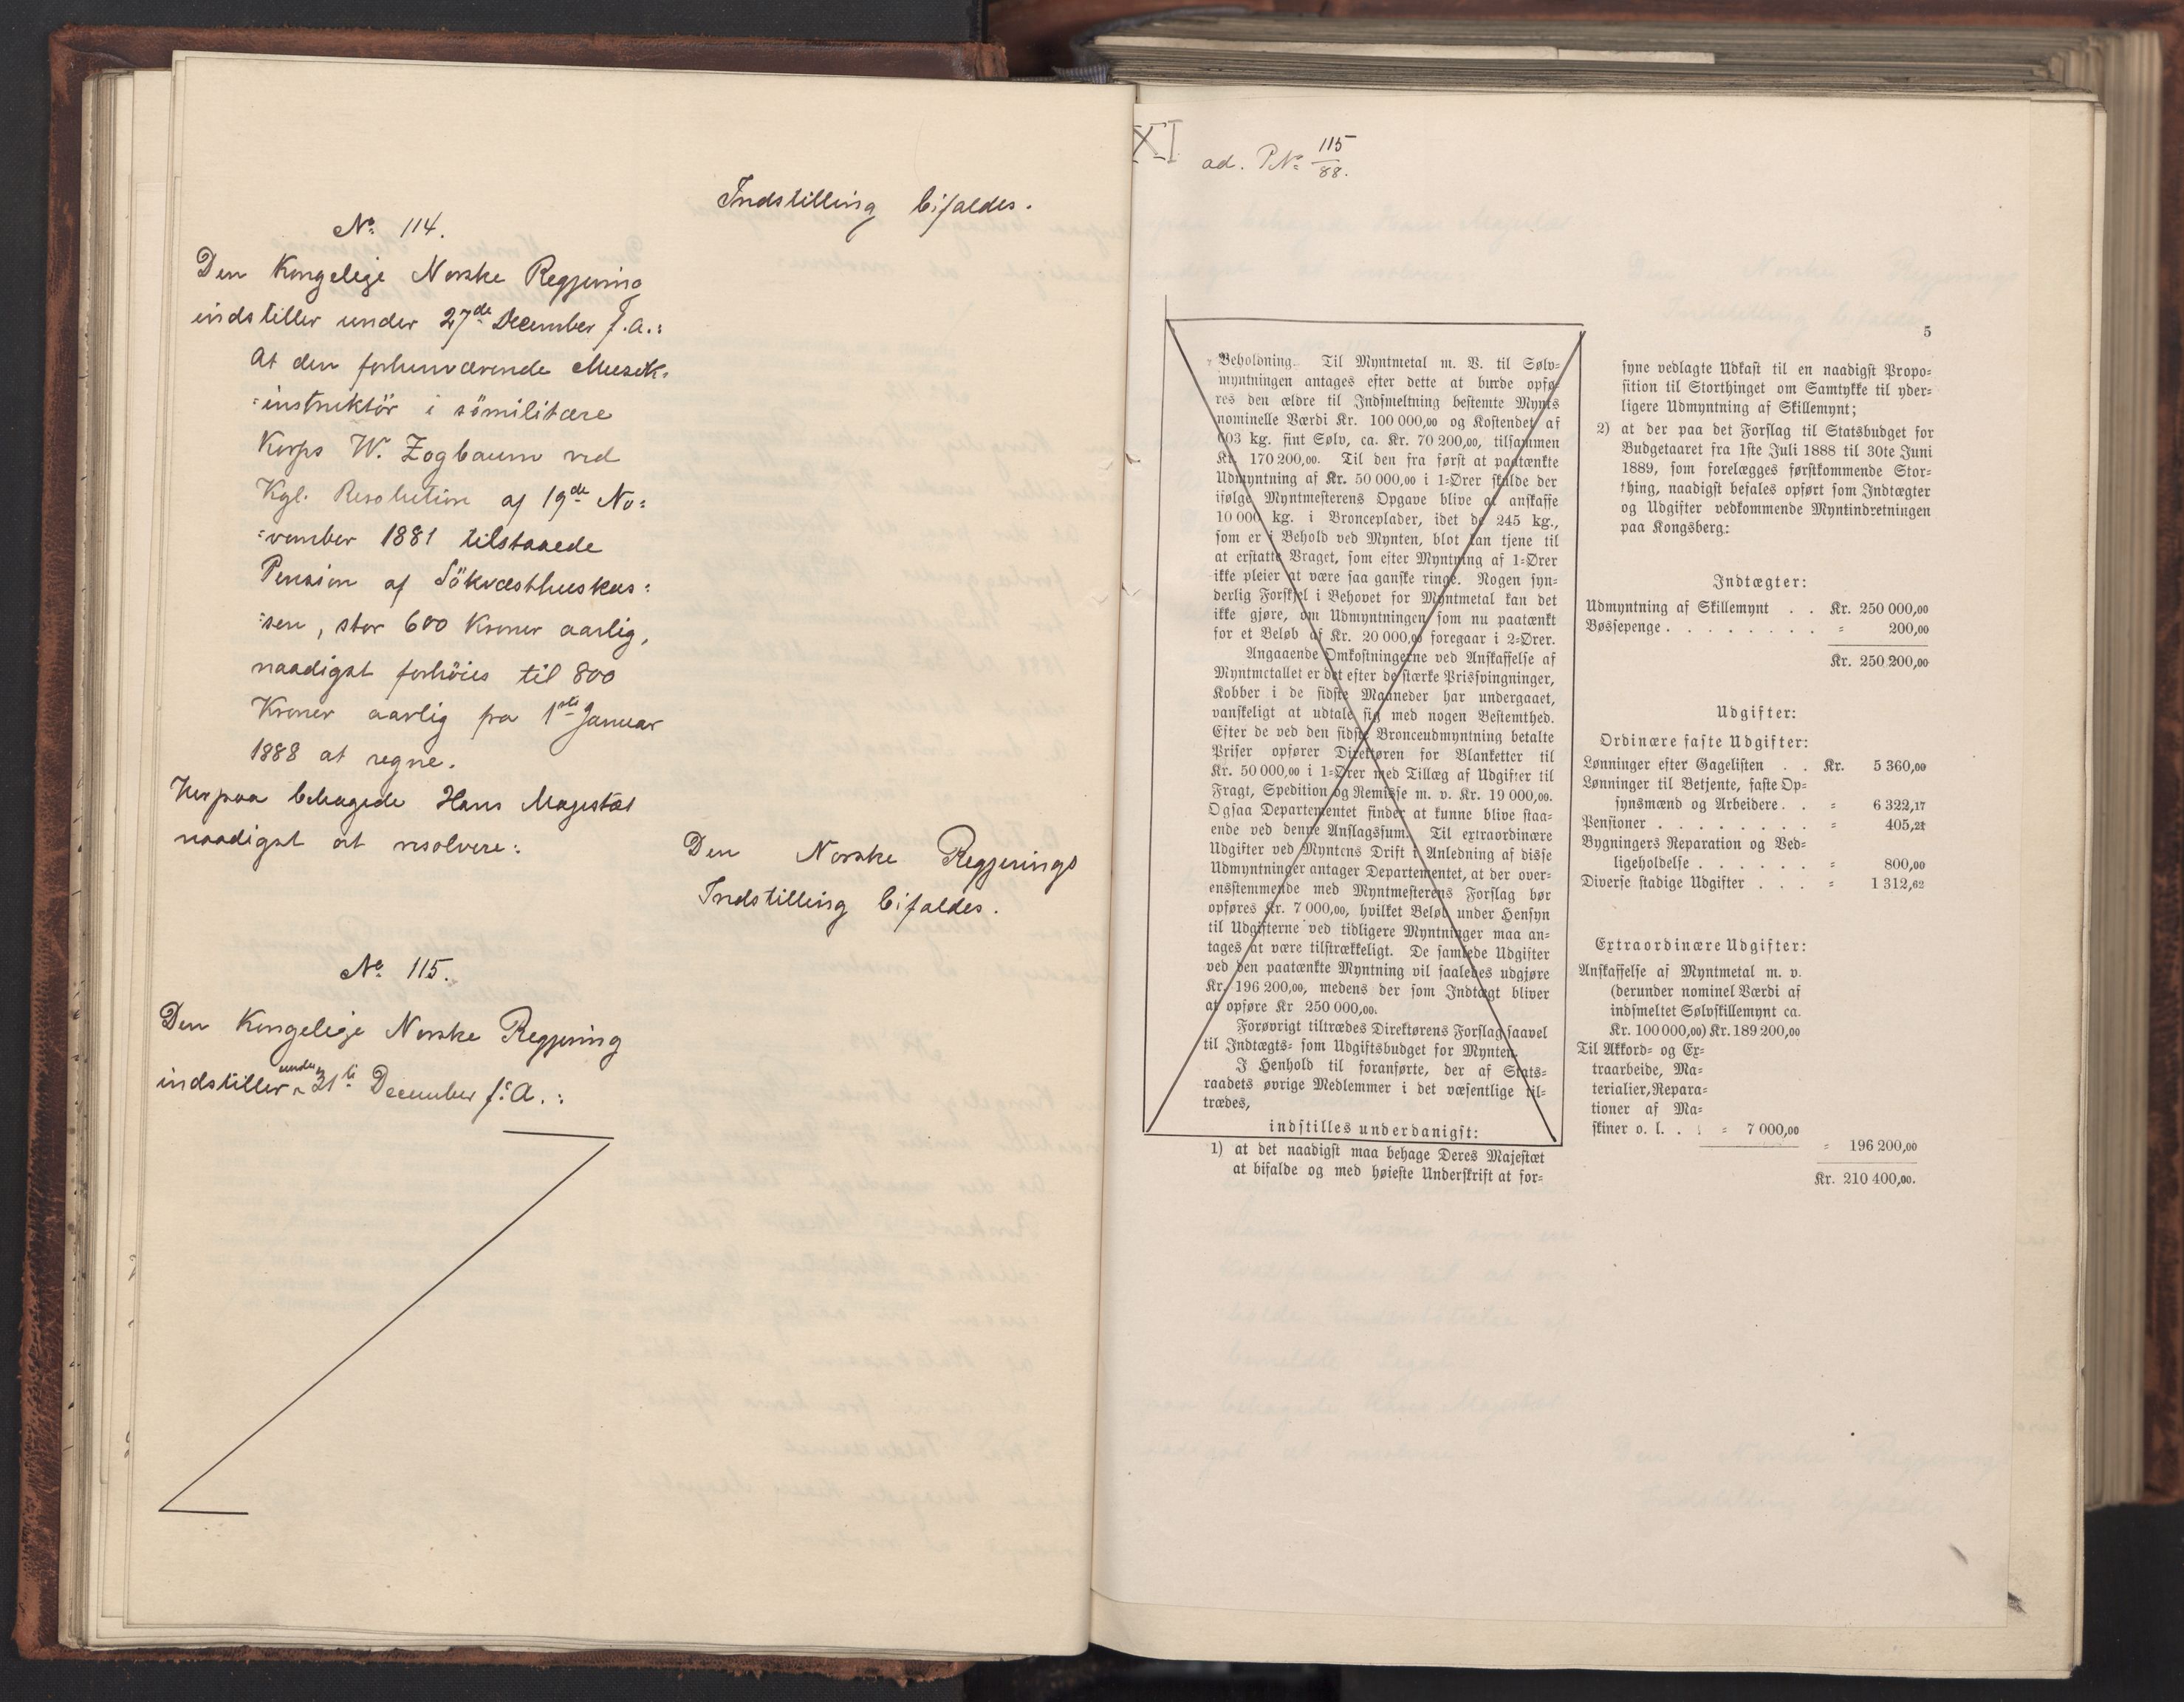 Indstilling bifaldes.
No. 114.
Den Kongelige Norske Regjering
indstiller under 27de December f. A.:
At den forhenværende Musik-
-instruktör i sömilitære
Korps W. Zogbaum ved
Kgl. Resolution af 19de No-
-vember 1881 tilstaaede
Pension af Sökvæsthuskas-
-sen, stor 600 Kroner aarlig,
naadigst forhöies til 800
Kroner aarlig fra 1ste Januar
1888 at regne.
Herpaa behagede Hans Majestæt
naadigst at resolvere:
Den Norske Regjerings
Indstilling bifaldes.
No. 115.
Den Kongelige Norske Regjering
indstiller under 31te December f. A.:
XI
ad. P.No. 115/88.
5
Beholdning. Til Myntmetal m. V. til Sølv-
myntningen antages efter dette at burde opfø-
res den ældre til Indsmeltning bestemte Mynts
nominelle Værdi Kr. 100 000,00 og Kostendet af
603 kg. fint Sølv, ca. Kr. 70 200,00, tilsammen
Kr. 170 200,00. Til den fra først at paatænkte
Udmyntning af Kr. 50 000,00 i 1-Ører skulde der
ifølge Myntmesterens Opgave blive at anskaffe
10 000 kg. i Bronceplader, idet de 245 kg.,
som er i Behold ved Mynten, blot kan tjene til
at erstatte Vraget, som efter Myntning af 1-Ører
ikke pleier at være saa ganske ringe. Nogen syn-
derlig Forskjel i Behovet for Myntmetal kan det
ikke gjøre, om Udmyntningen som nu paatænkt
for et Beløb af Kr. 20 000,00 foregaar i 2-Ører.
Angaaende Omkostningerne ved Anskaffelse af
Myntmetallet er det efter de stærke Prissvingninger,
Kobber i de sidste Maaneder har undergaaet,
vanskeligt at udtale sig med nogen Bestemthed.
Efter de ved den sidste Bronceudmyntning betalte
Priser opfører Direktøren for Blanketter til
Kr. 50 000,00 i 1-Ører med Tillæg af Udgifter til
Fragt, Spedition og Remisse m. v. Kr. 19 000,00.
Ogsaa Departementet finder at kunne blive staa-
ende ved denne Anslagssum. Til extraordinære
Udgifter ved Myntens Drift i Anledning af disse
Udmyntninger antager Departementet, at der over-
ensstemmende med Myntmesterens Forslag bør
opføres Kr. 7 000,00, hvilket Beløb under Hensyn
til Udgifterne ved tidligere Myntninger maa an-
tages at være tilstrækkeligt. De samlede Udgifter
ved den paatænkte Myntning vil saaledes udgjøre
Kr. 196 200,00, medens der som Indtægt bliver
at opføre Kr 250 000,00.
Forøvrigt tiltrædes Direktørens Forslag saavel
til Indtægts- som Udgiftsbudget for Mynten.
I Henhold til foranførte, der af Stats-
raadets øvrige Medlemmer i det væsentlige til-
trædes,
indstilles underdanigst:
1) at det naadigst maa behage Deres Majestæt
at bifalde og med høieste Underskrift at for-
syne vedlagte Udkast til en naadigst Propo-
sition til Storthinget om Samtykke til yder-
ligere Udmyntning af Skillemynt;
2) at der paa det Forslag til Statsbudget for
Budgetaaret fra 1ste Juli 1888 til 30te Juni
1889, som forelægges førstkommende Stor-
thing, naadigst befales opført som Indtægter
og Udgifter vedkommende Myntindretningen
paa Kongsberg:
Indtægter:
Udmyntning af Skillemynt . . Kr. 250 000,00
Bøssepenge . . . . . . . . = 200,00
Kr. 250 200,00
Udgifter:
Ordinære faste Udgifter:
Lønninger efter Gagelisten . . Kr. 5 360,00
Lønninger til Betjente, faste Op-
synsmænd og Arbeidere. . = 6 322,17
Pensioner . . . . . . . . = 405,21
Bygningers Reparation og Ved-
ligeholdelse . . . . . = 800,00
Diverse stadige Udgifter . . . = 1 312,62
Extraordinære Udgifter:
Anskaffelse af Myntmetal m. v.
(derunder nominel Værdi af
indsmeltet Sølvskillemynt ca.
Kr. 100 000,00) Kr. 189 200,00
Til Akkord- og Ex-
traarbeide, Ma-
terialier, Repara-
tioner af Ma-
skiner o. l. . . = 7 000,00
= 196 200,00
Kr. 210 400,00.